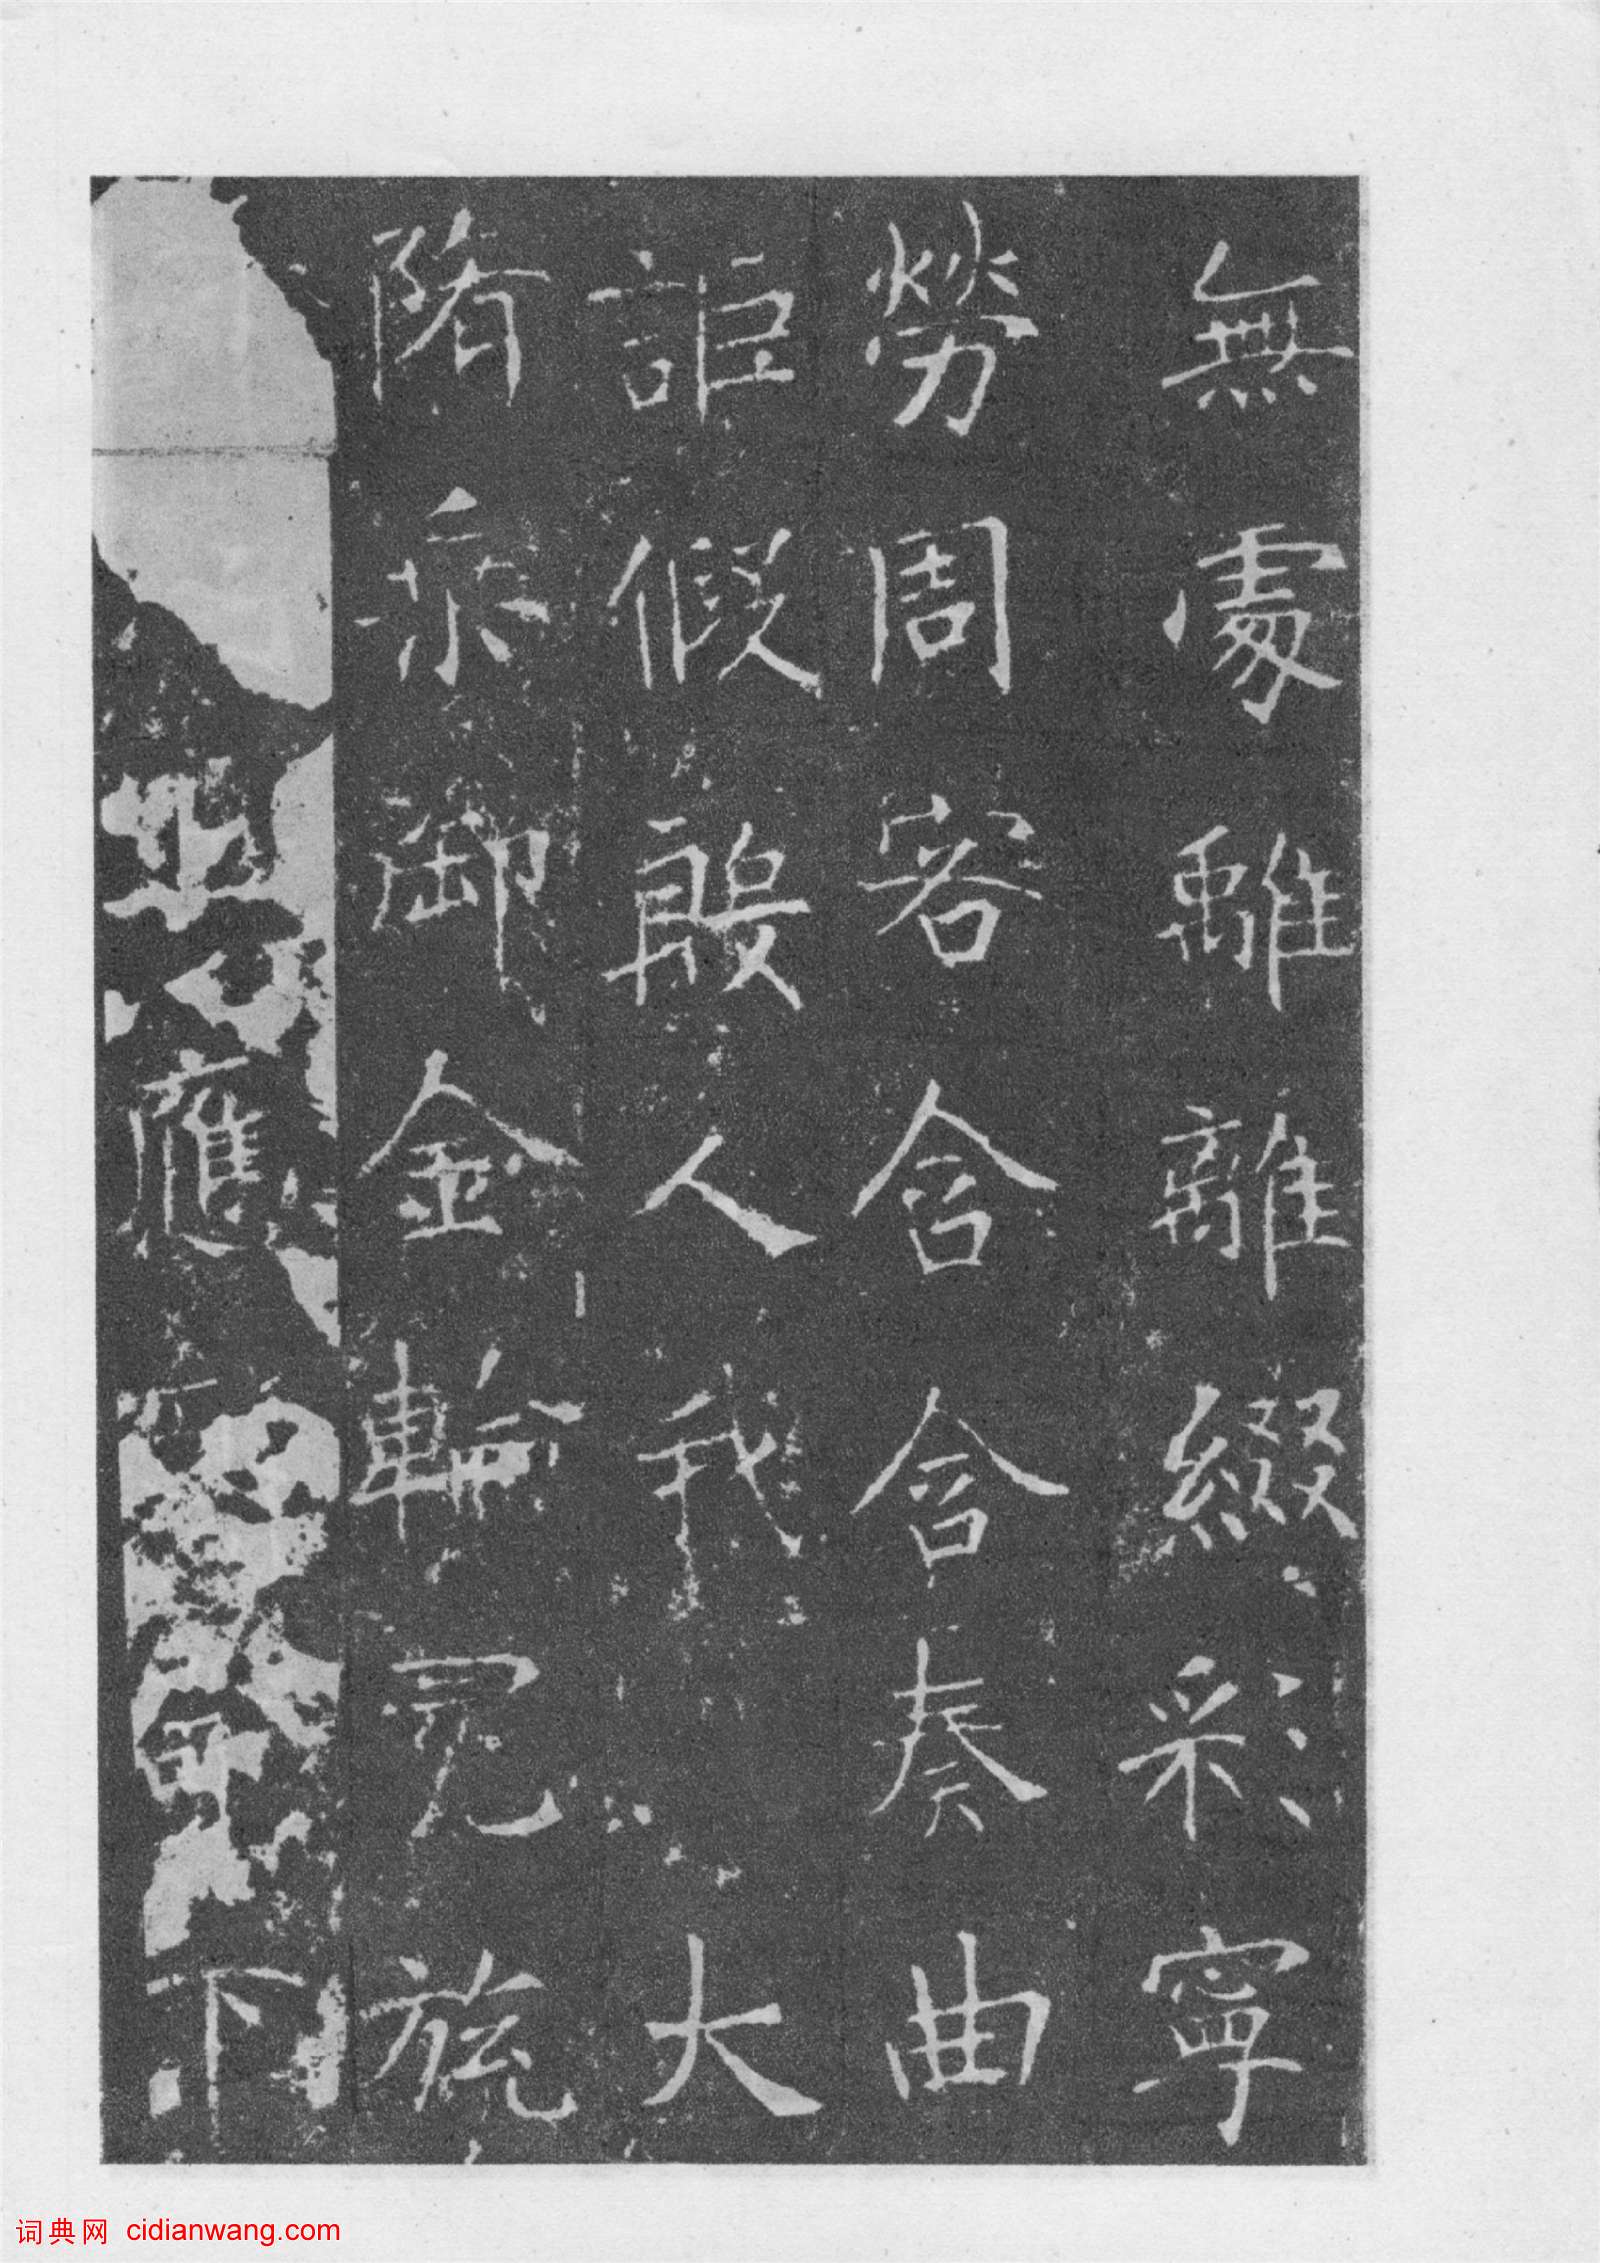 無處離離綴彩寧
勞周客含含奏曲
詎假殷人我大
隋乘御金輪冕旒
應下
词典网 cidianwang.com